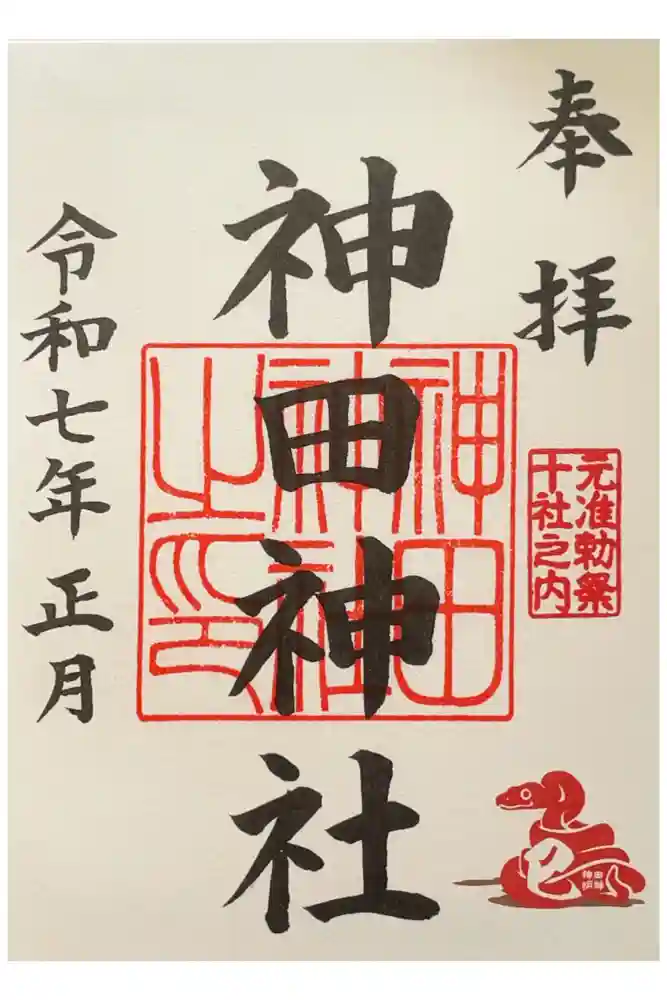 奉拝
元准勅祭
十社之内
巳
神田神社
神田
神社
之印
令和七年正月